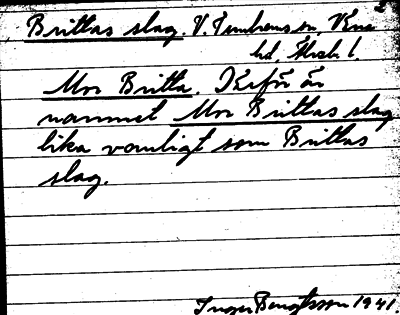 Brittas slag. V. Tunhems sn, Väne
hd, Älvsb. l.
Mor Britta. Därför är
namnet Mor Brittas slag
lika vanligt som Brittas
slag.
Inger Bengtsson 1941.